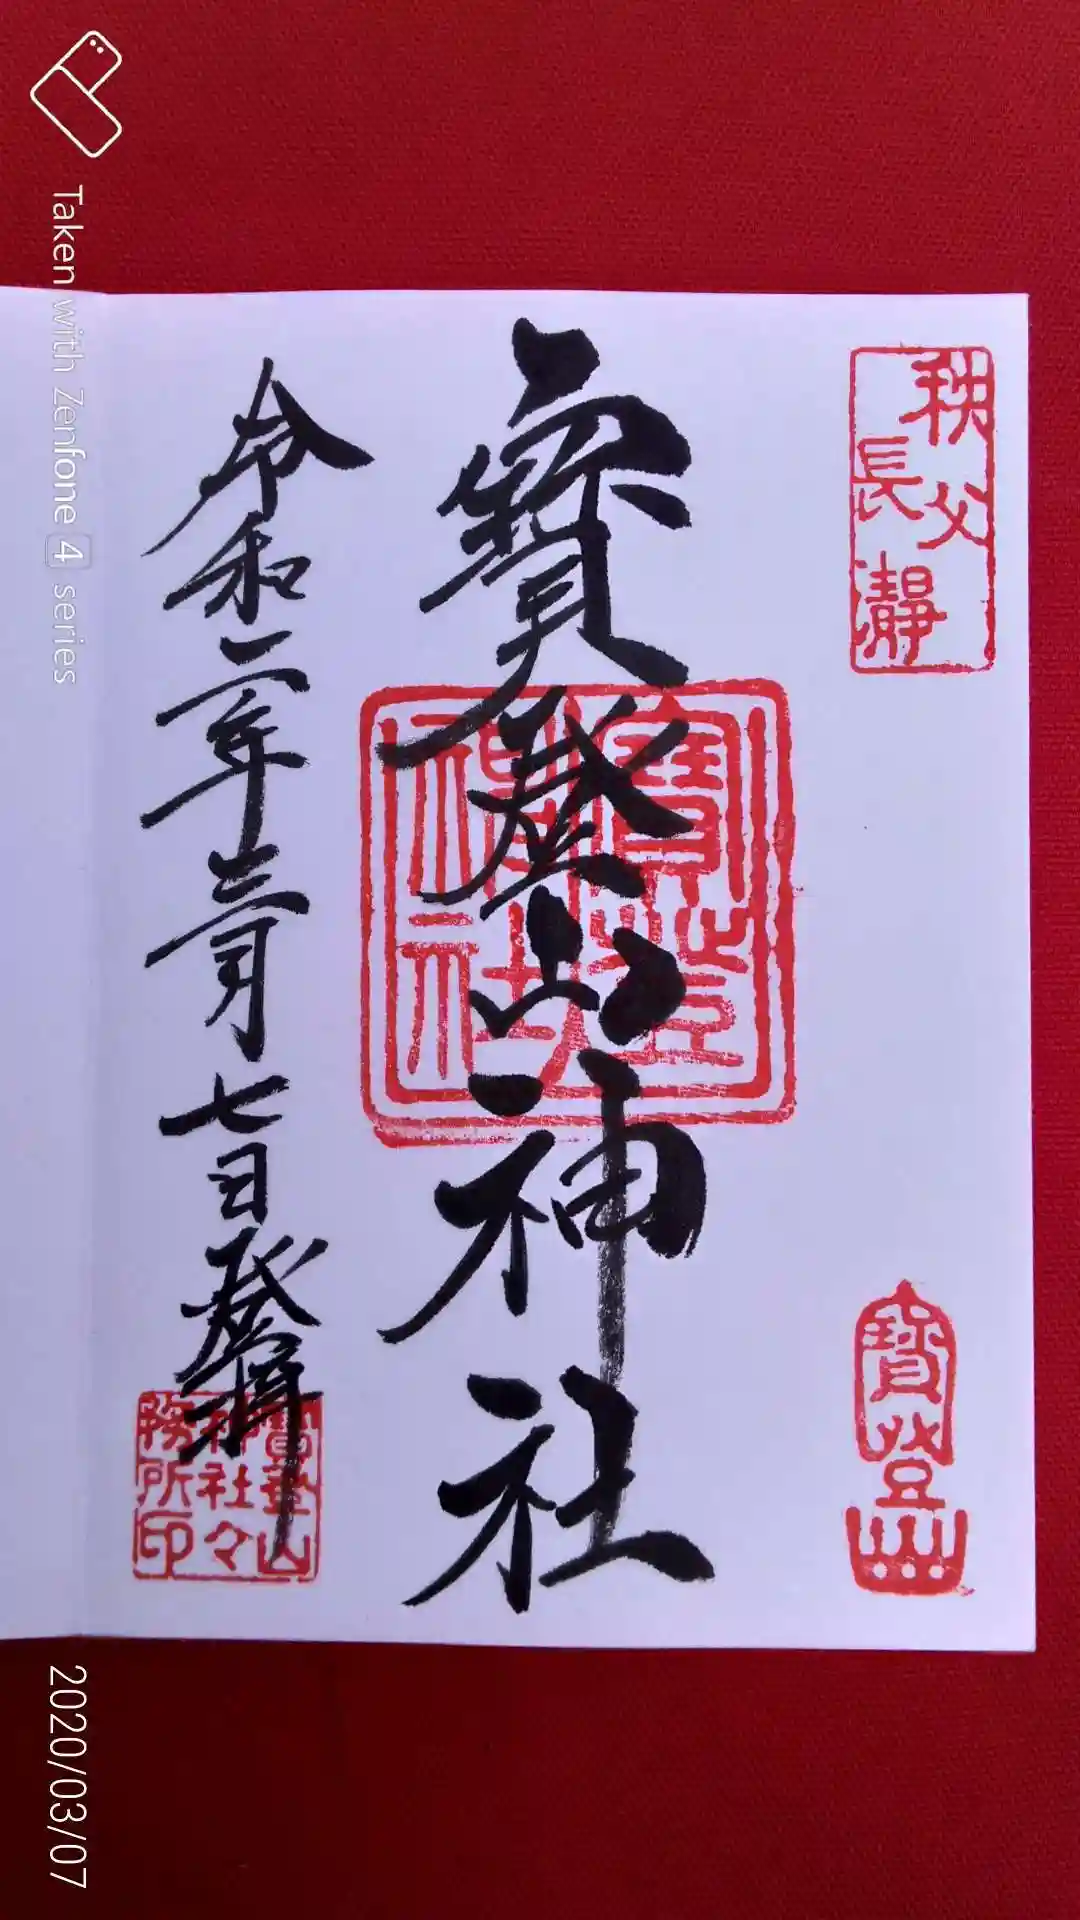 秩父
長瀞
寶登山
寶登山神社
寶登
神社
令和二年三月七日登拝
寶登山
神社々
務所印
Taken with Zenfone 4 series
2020/03/07